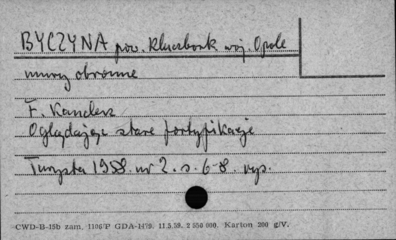 BYCZYNA pow. Kluczbork woj. Opole
mury obronne
F. Kanders
Oglądając stare fortyfikacje
Turysta 1958. nr 2. s. 6-8. ryc.
CWD-B-15b zam. 1106/P GDA-H79. 11.5.59. 2 550 000. Karton 200 g/V.